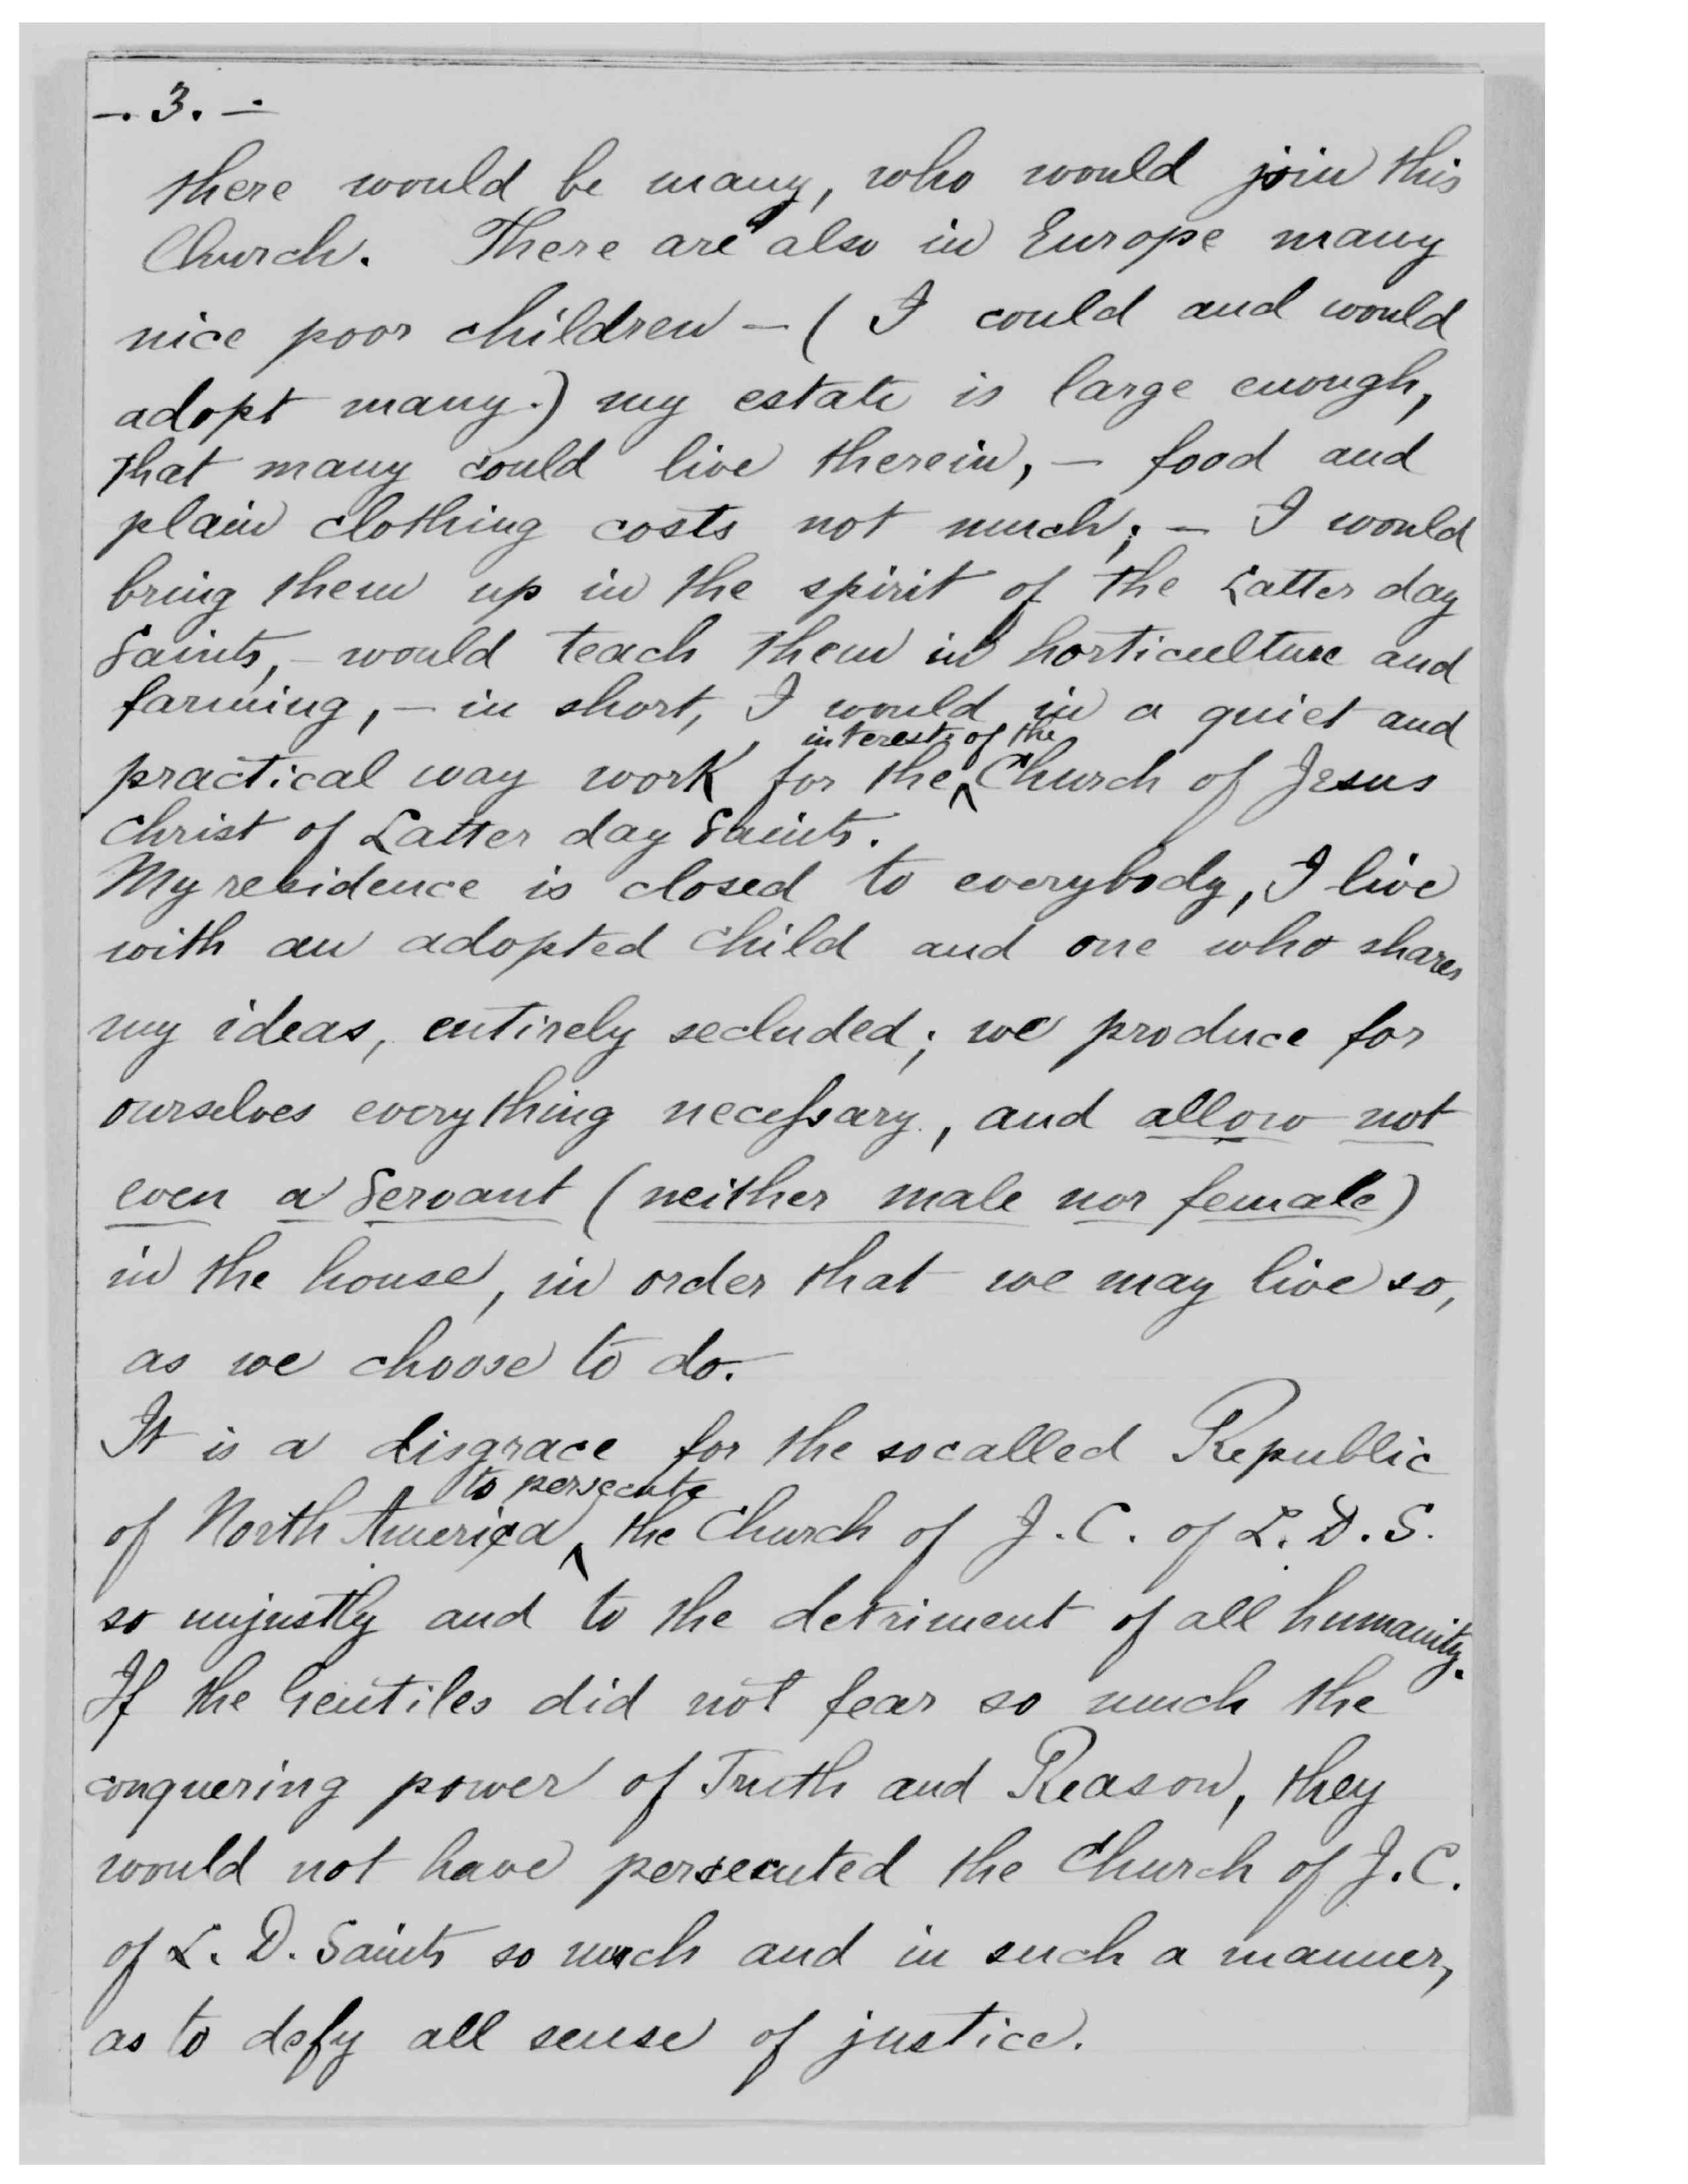 —. 3. —
there would be many, who would join this
Church. There are also in Europe many
nice poor children — ( I could and would
adopt many.) my estate is large enough,
that many could live therein, — food and
plain clothing costs not much; — I would
bring them up in the spirit of the Latter day
Saints, — would teach them in horticulture and
farming, — in short, I would, in a quiet and
interests of the
practical way work for the ^ Church of Jesus
Christ of Latter day Saints.
My residence is closed to everybody, I live
with an adopted child and one who shares
my ideas, entirely secluded; we produce for
ourselves everything necessary, and allow not
even a Servant (neither male nor female)
in the house, in order that we may live so,
as we choose to do.
It is a disgrace for the socalled Republic
to persecute
of North America ^ the Church of J. C. of L. D. S.
so unjustly and to the detriment of all humanity.
If the Gentiles did not fear so much the
conquering power of Truth and Reason, they
would not have persecuted the Church of J. C.
of L. D. Saints so much and in such a manner,
as to defy all sense of justice.